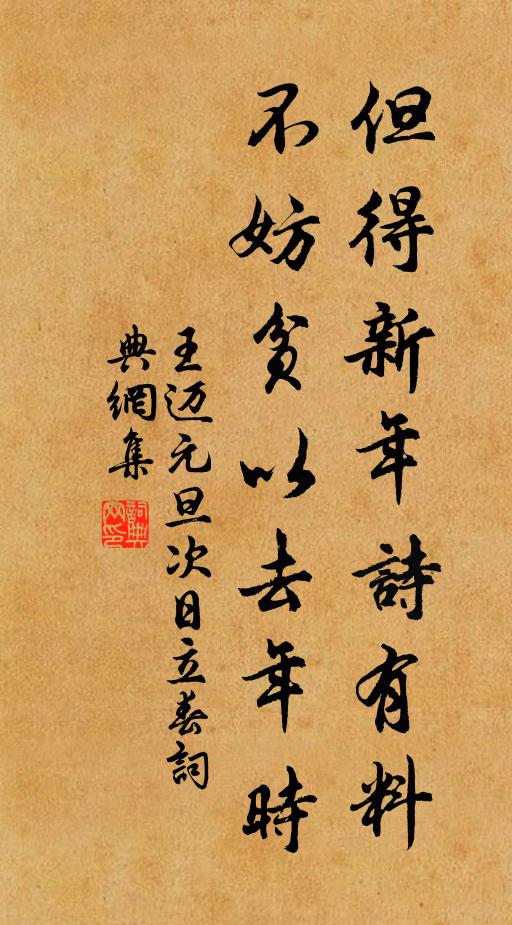 但得新年詩有料
不妨貧以去年時
王迈元旦次日立春詞
典網集
詞典
网印